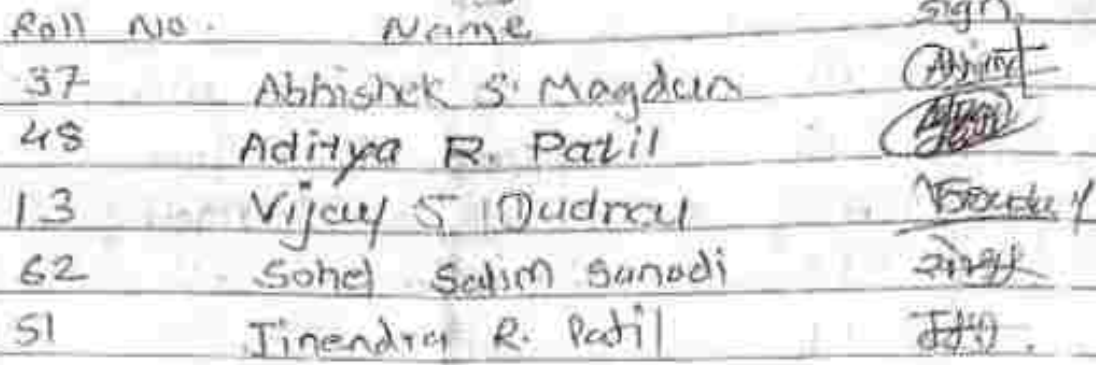 Roll No. Name Sign.
37 Abhishek S. Magdum
48 Aditya R. Patil
13 Vijay S
62 Sohel Salim Sanadi
51 Jinendra R. Patil